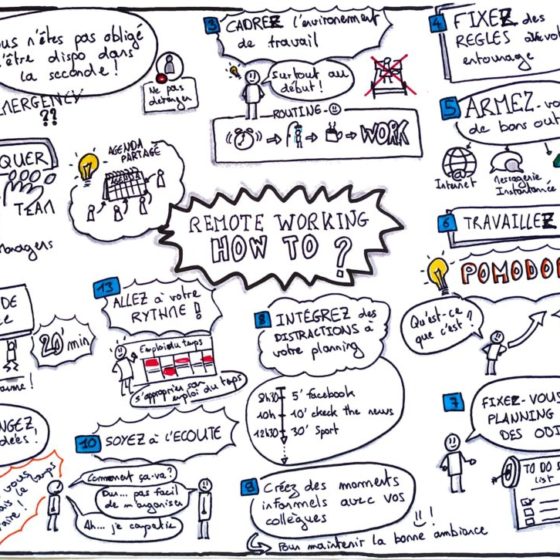 vous n'êtes pas obligé
d'être dispo dans
la seconde !
EMERGENCY
??
Ne pas
déranger
3 CADREZ l'environnement
de travail
Surtout au
début !
ROUTINE
WORK
4 FIXEZ des
RÈGLES
entourage
5 ARMEZ-vo
de bons out
Internet
Messagerie
Instantanée
6 TRAVAILLEZ
POMODO
Qu'est-ce
que c'est ?
7 FIXEZ-VOUS
PLANNING
DES
TO DO
LIST
QUER
TEAM
Managers
AGENDA
PARTAGÉ
AGENDA
REMOTE WORKING
HOW TO ?
DE
CE
20' min
13
ALLEZ à votre
RYTHME !
Emploi du temps
s'approprier son
emploi du temps
8 INTÉGREZ des
DISTRACTIONS à
votre planning
8h30 5' facebook
10h 10' check the news
12h30 30' Sport
10 SOYEZ à L'ÉCOUTE
Comment ça-va ?
Bur... pas facile
de m'organiser
Ah... je compatie
vous
le temps
9 CRÉEZ des moments
informels avec vos
collègues
Pour maintenir la bonne ambiance